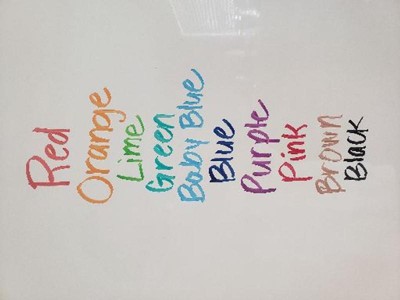 Red
Orange
Lime
Green
Baby Blue
Blue
Purple
Pink
Brown
Black